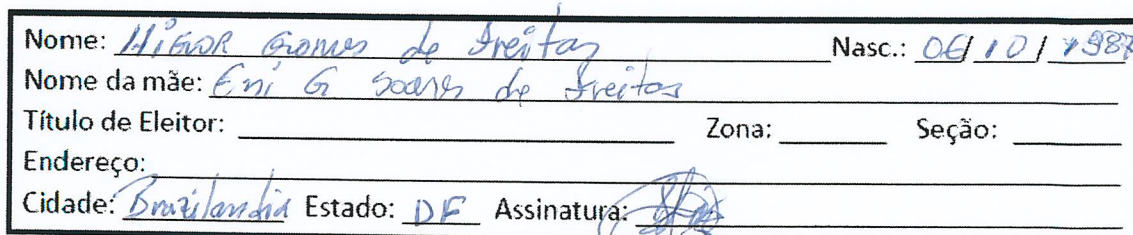 Nome: Higor Gomes de Freitas Nasc.: 06/10/1987
Nome da mãe: Eni G Soares de Freitas
Título de Eleitor: Zona: Seção:
Endereço:
Cidade: Brazilandia Estado: DF Assinatura: